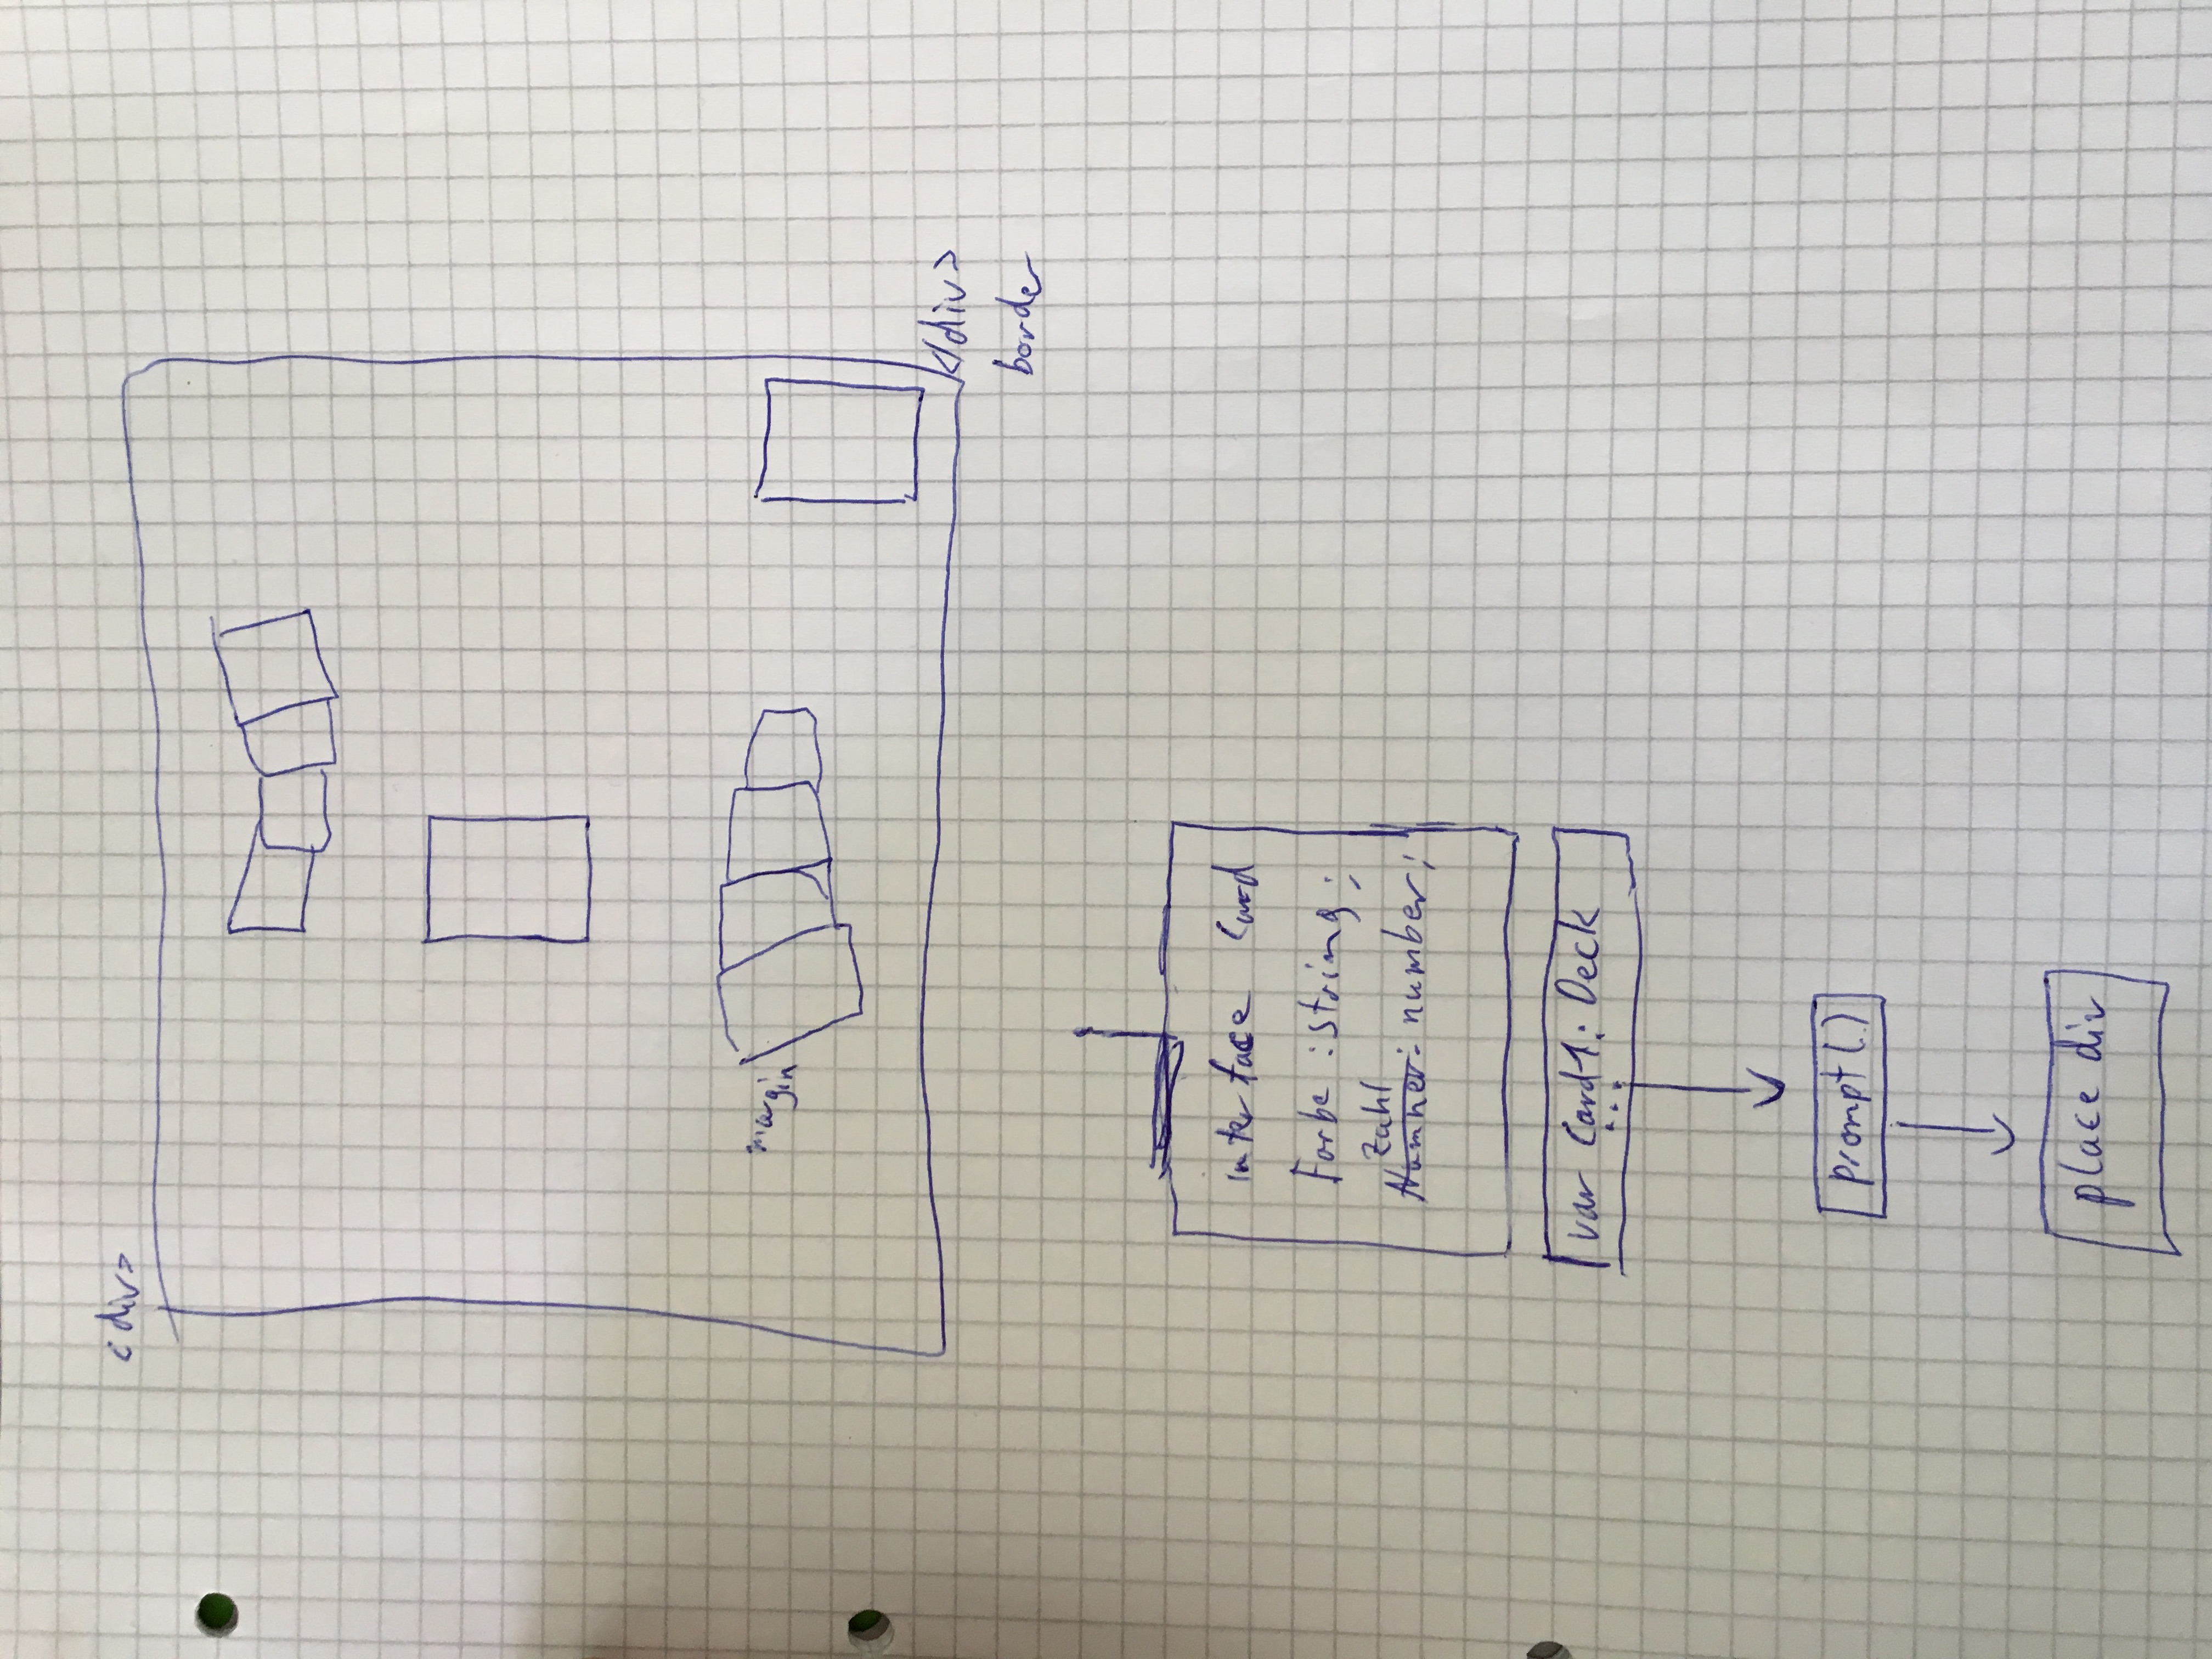 <div>
margin
</div>
border
interface Card
Farbe : string;
Zahl
Nummer: number;
var Card1: Deck
...
prompt(.)
place div